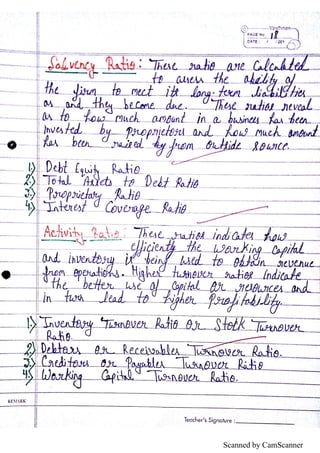 PAGE No. 18
DATE: / /201
Solvency Ratio: These ratio are calculated
to assess the ability of
the firm to meet its long-term liabilities
as and they become due. These ratios reveal
as to how much amount in a business has been
invested by proprietors and how much amount
has been raised by from outside source.
1) Debt Equity Ratio
2) Total Assets to Debt Ratio
3) Proprietary Ratio
4) Interest Coverage Ratio
Activity Ratio: These ratios indicates how
efficiently the working capital
and inventory is being used to obtain revenue
from operations. Higher turnover ratios Indicate
the better use of capital or resources and
in turn lead to higher profitability.
1) Inventory Turnover Ratio or Stock Turnover
Ratio.
2) Debtors or Receivables Turnover Ratio.
3) Creditors or Payables Turnover Ratio
4) Working Capital Turnover Ratio.
REMARK
Teacher's Signature :
Scanned by CamScanner